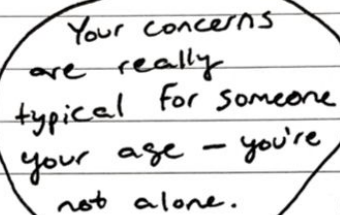 Your concerns
are really
typical for someone
your age – you're
not alone.